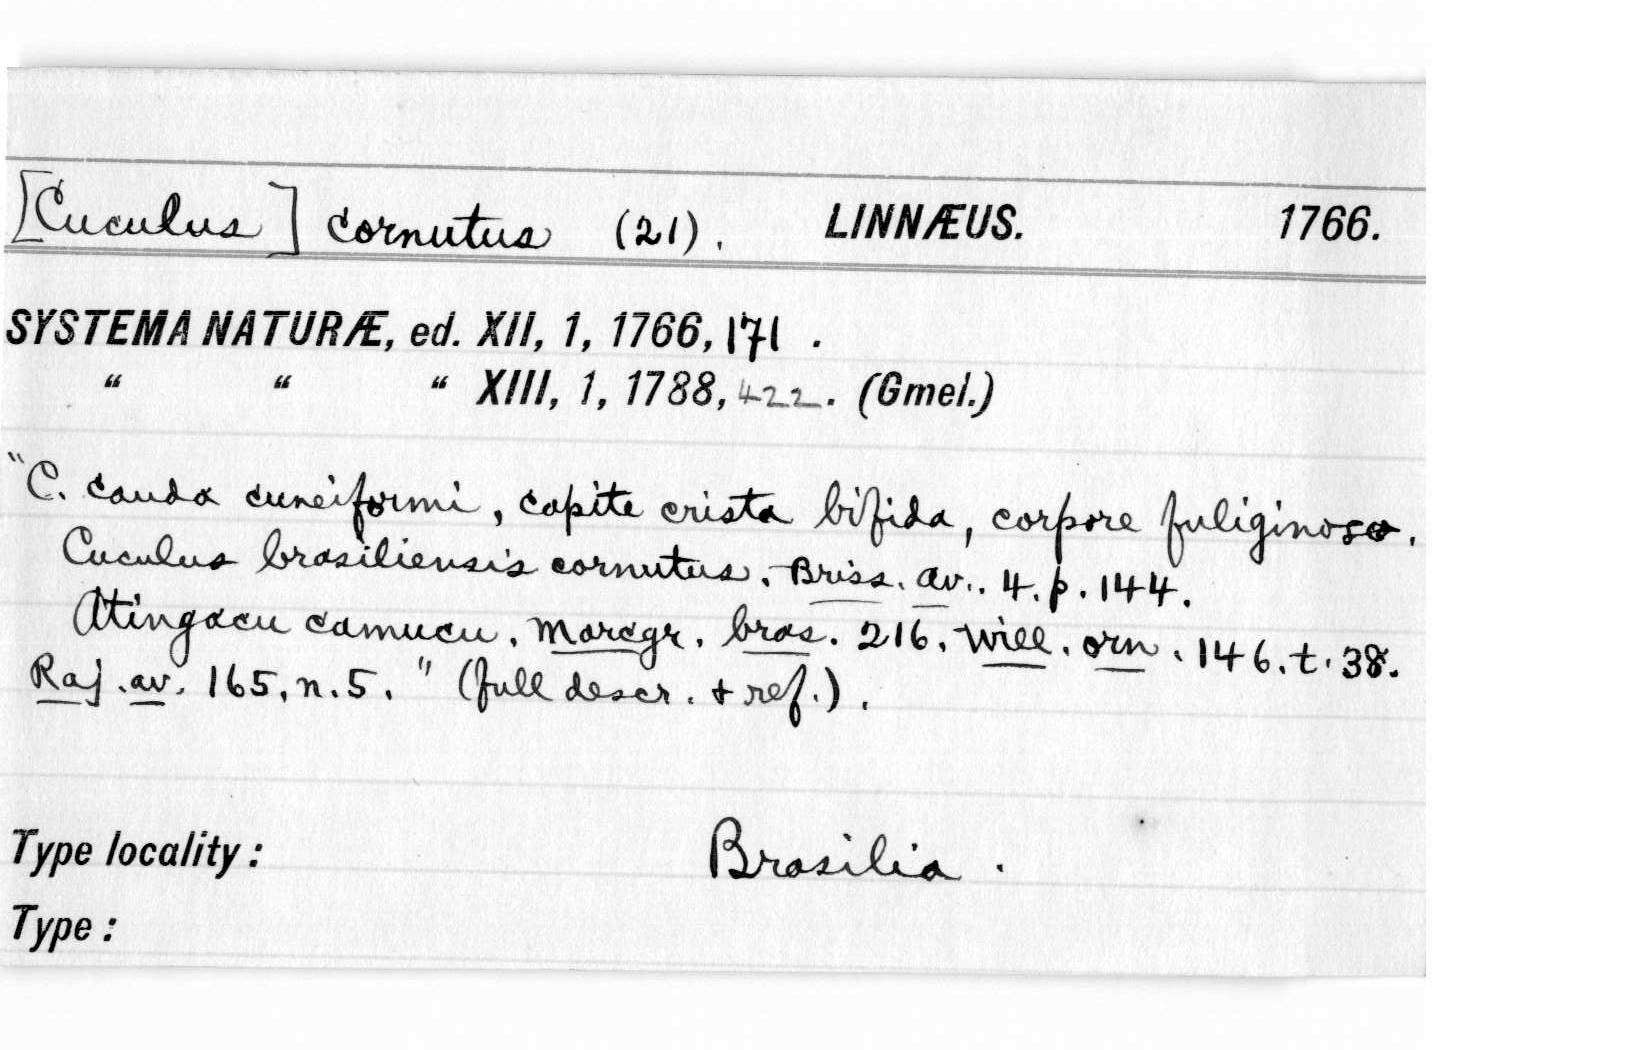 [Cuculus] cornutus (21). LINNÆUS. 1766.
SYSTEMA NATURÆ, ed. XII, 1, 1766, 171.
“ “ “ XIII, 1, 1788, 422. (Gmel.)
"C. cauda cuneiformi, capite crista bifida, corpore fuliginoso.
Cuculus brasiliensis cornutus. Briss. av.. 4. p. 144.
Atingacu camucu. Marcgr. bras. 216. Will. orn. 146. t. 38.
Raj. av. 165, n. 5." (full descr. & ref.).
Type locality: Brasilia.
Type: